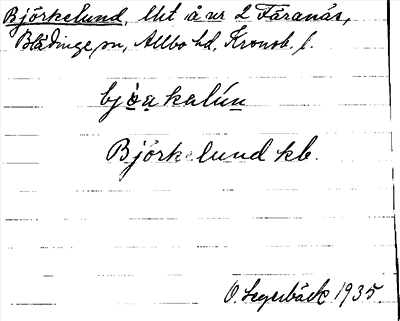 Björkelund, lht å nr 2 Fåranäs,
Blädinge sn, Allbo hd, Kronob. l.
bjòakalún
Björkelund kb.
O. Segerbäck 1935.